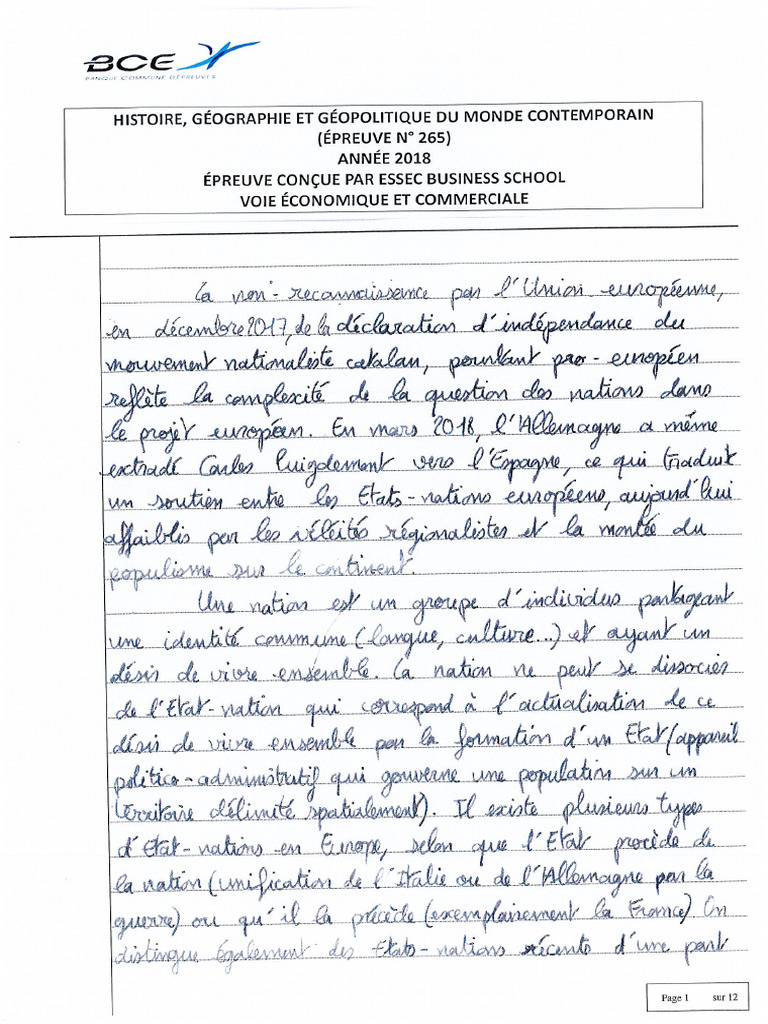 BCE
BANQUE COMMUNE D'ÉPREUVES
HISTOIRE, GÉOGRAPHIE ET GÉOPOLITIQUE DU MONDE CONTEMPORAIN
(ÉPREUVE N° 265)
ANNÉE 2018
ÉPREUVE CONÇUE PAR ESSEC BUSINESS SCHOOL
VOIE ÉCONOMIQUE ET COMMERCIALE
La non-reconnaissance par l'Union européenne,
en décembre 2017, de la déclaration d'indépendance du
mouvement nationaliste catalan, pourtant pro-européen
reflète la complexité de la question des nations dans
le projet européen. En mars 2018, l'Allemagne a même
extradé Carles Puigdemont vers l'Espagne, ce qui traduit
un soutien entre les Etats-nations européens, aujourd'hui
affaiblis par les vélléités régionalistes et la montée du
populisme sur le continent.
Une nation est un groupe d'individus partageant
une identité commune (langue, culture...) et ayant un
désir de vivre ensemble. La nation ne peut se dissocier
de l'Etat-nation qui correspond à l'actualisation de ce
désir de vivre ensemble par la formation d'un Etat (appareil
politico-administratif qui gouverne une population sur un
territoire délimité spatialement). Il existe plusieurs types
d'Etat-nations en Europe, selon que l'Etat procède de
la nation (unification de l'Italie ou de l'Allemagne par la
guerre) ou qu'il la précède (exemplairement la France). On
distingue également des Etats-nations récents d'une part
Page 1 sur 12